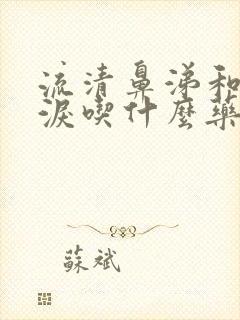 流清鼻涕和
淚喫什麼藥
蘇斌